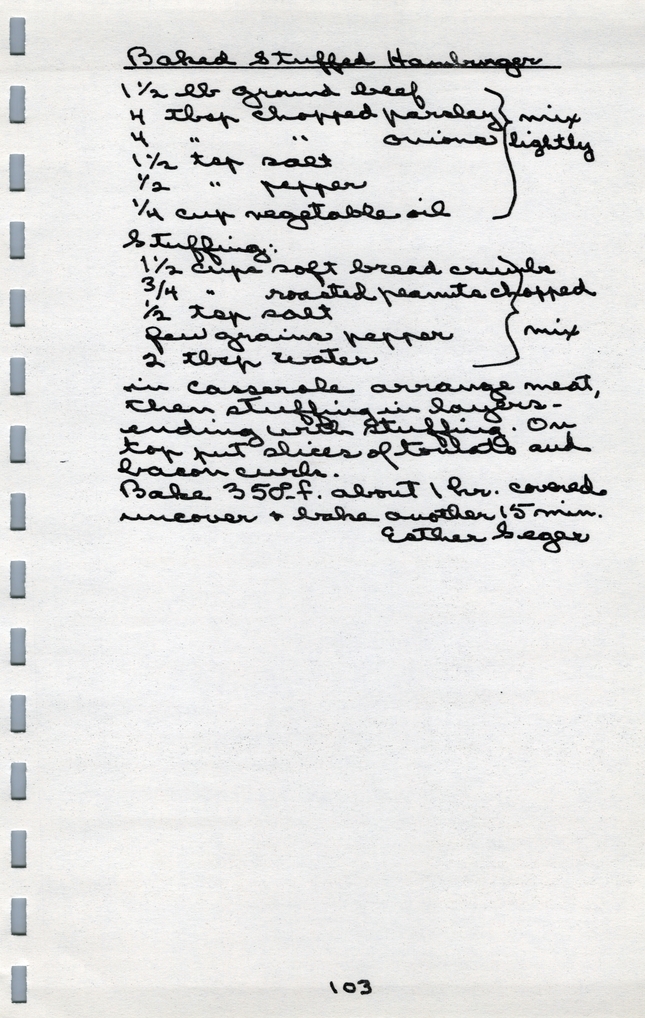 Baked Stuffed Hamburger
1 1/2 lb ground beef
4 tbsp chopped parsley } mix
4 " " onions lightly
1 1/2 tsp salt
1/2 " pepper
1/4 cup vegetable oil
Stuffing:
1 1/2 cups soft bread crumbs
3/4 " roasted peanuts chopped
1/2 tsp salt
few grains pepper } mix
2 tbsp water
in casserole arrange meat,
then stuffing in layers-
ending with stuffing. On
top put slices of tomato and
bacon curls.
Bake 350° f. about 1 hr. covered
uncover + bake another 15 min.
Esther Seger
103